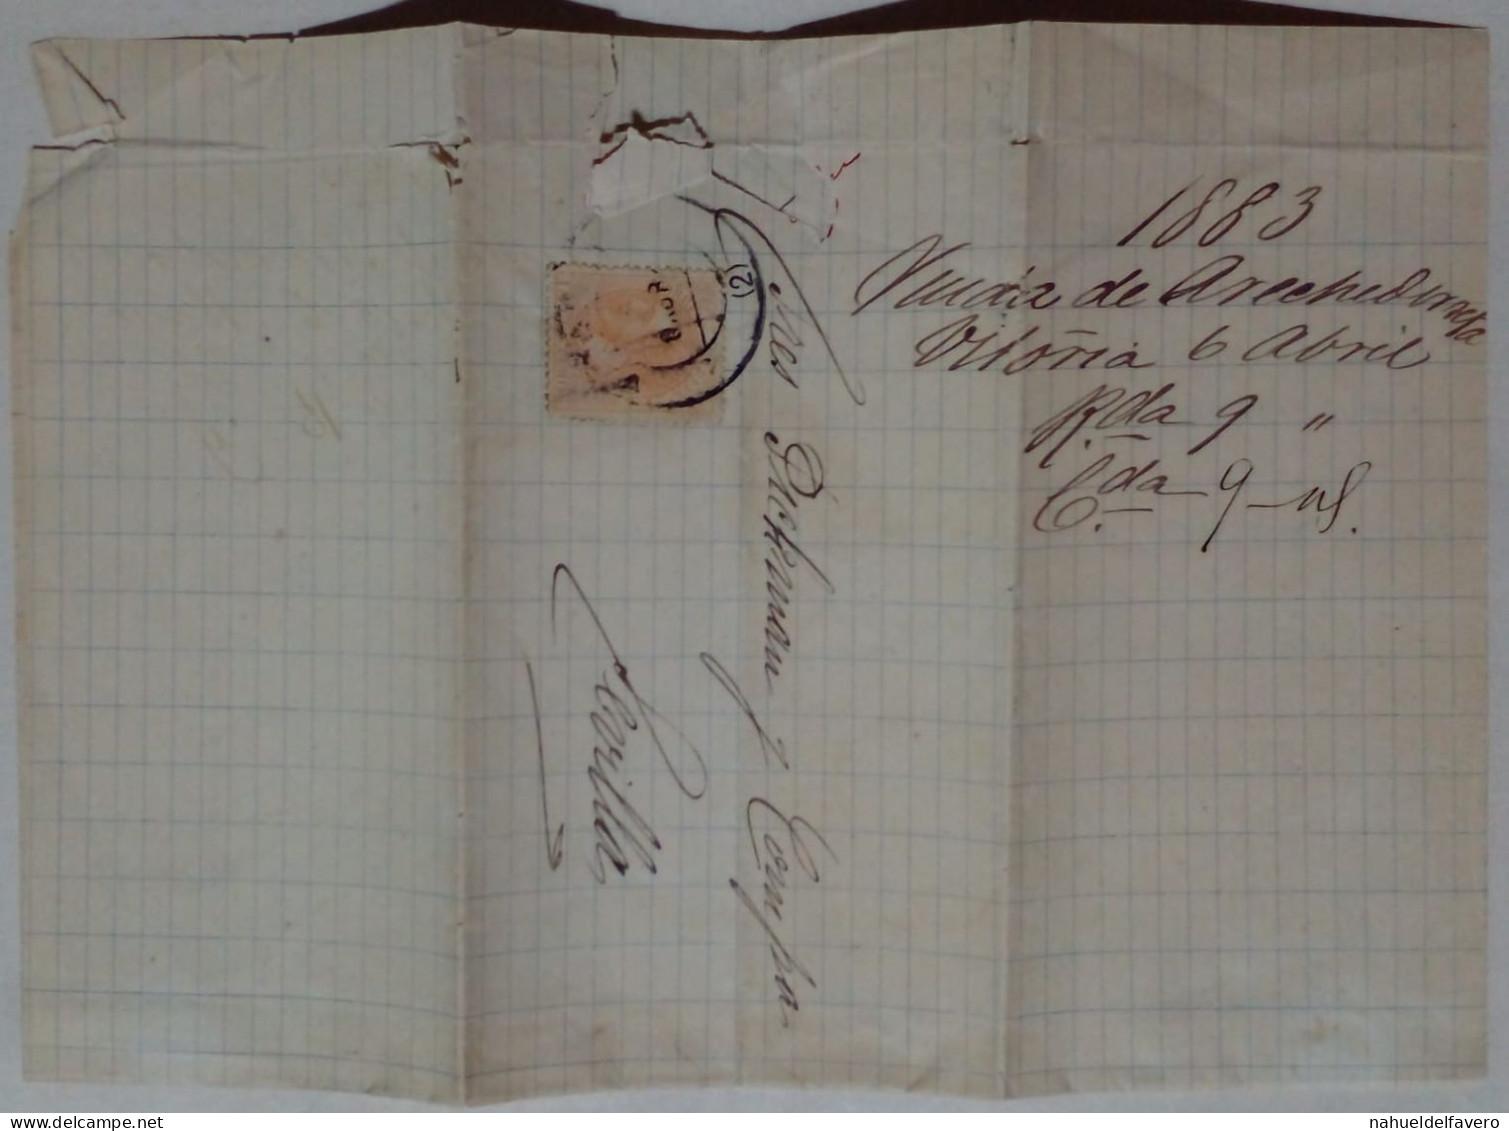 1883
Viuda de Arechederreta
Vitoria 6 Abril
R.da 9 "
C.da 9
Sres Pickman y Compa
Sevilla
(2)
nahueldelfavero